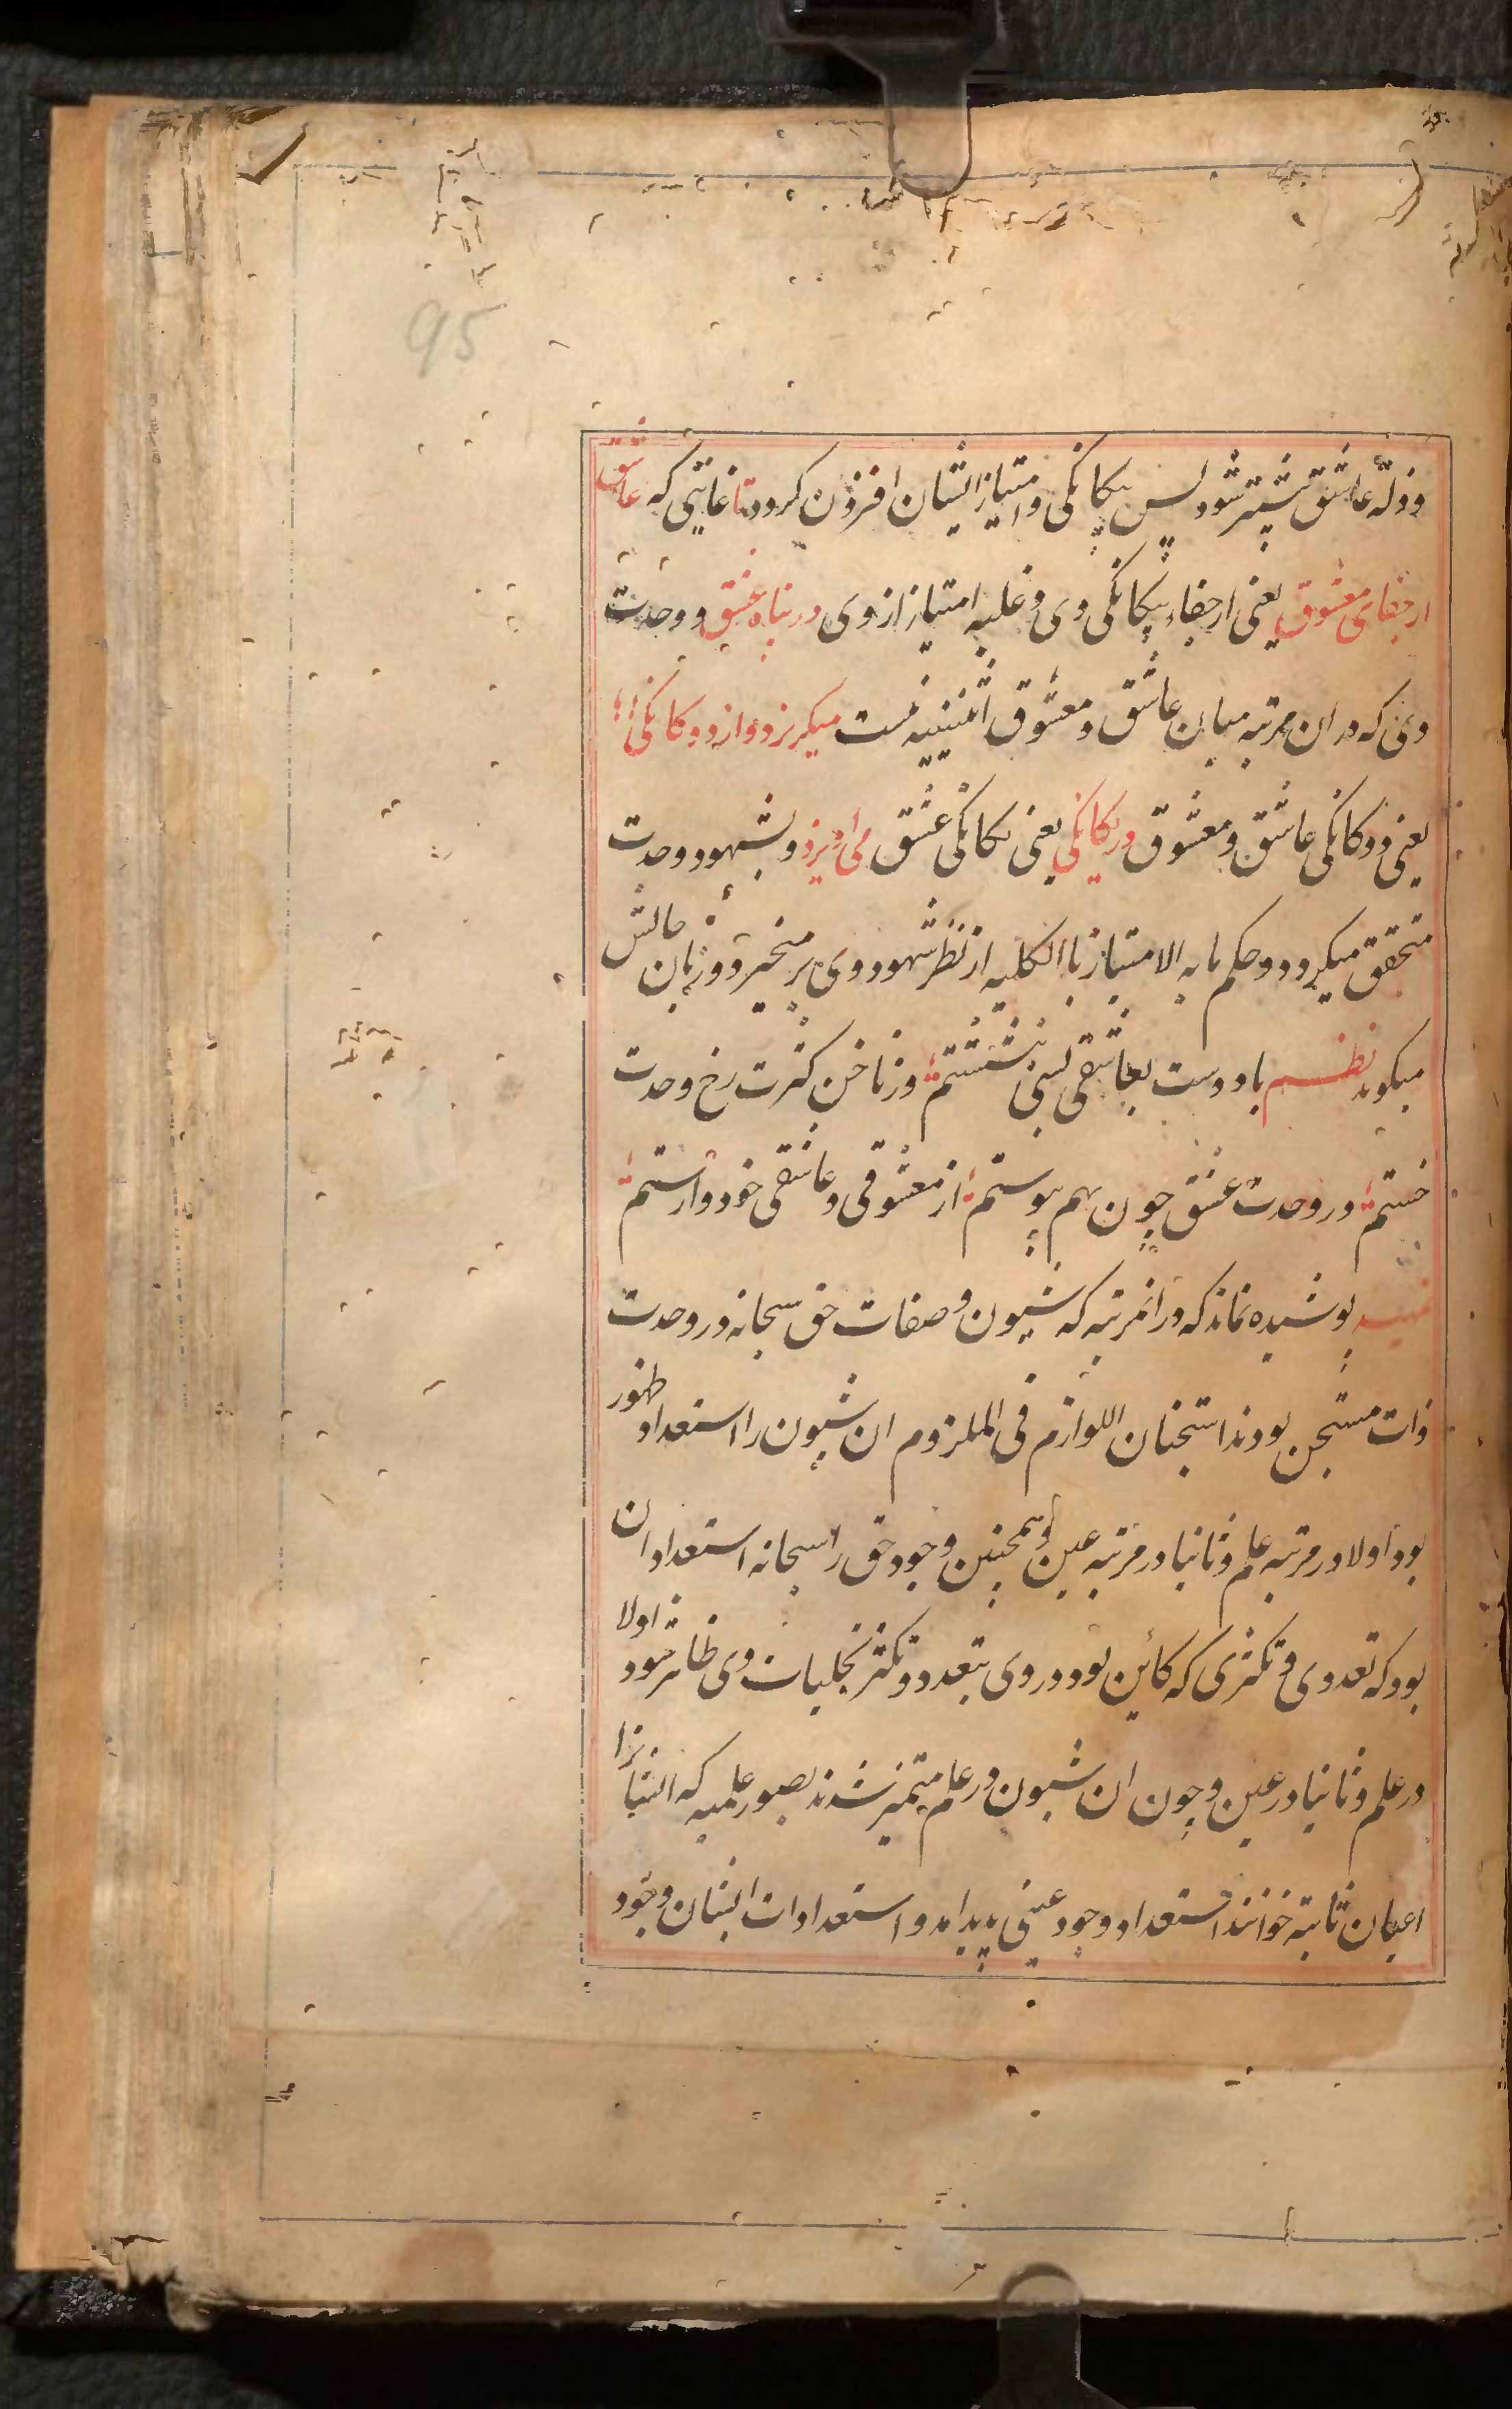 95
و ذلّة عاشق بیشتر شود پس بیکانکی و امتیاز ایشان افزون کردد تا غایتی که عاشق
از جفای معشوق یعنی از جفاء بیکانکی وی و غلبه امتیاز از وی در پناه عشق و وحدت
وی که در ان مرتبه میان عاشق و معشوق اثنینیه نیست میکریزد و از دوکانکی
یعنی دوکانکی عاشق و معشوق در یکانکی یعنی یکانکی عشق می اویزد و بشهود وحدت
متحقق میکردد و حکم ما به الامتیاز باالکلیه از نظر شهود وی بر میخیزد و زبان حالش
میکوید نظم با دوست بعاشقی بسی بنشستم وز ناخن کثرت رخ وحدت
خستم در وحدت عشق چون بهم پیوستم از معشوقی و عاشقی خود وارستم
تمهید پوشیده نماند که در انمرتبه که شیون و صفات حق سبحانه در وحدت
ذات مستجن بودند استجنان اللوازم فی الملزوم ان شیون را استعداد ظهور
بود اولا در مرتبه علم و ثانیا در مرتبه عین و همچنین وجود حق را سبحانه استعداد ان
بود که تعددی و تکثری که کائن بود در وی بتعدد و تکثر تجلیات وی ظاهر شود اولا
در علم و ثانیا در عین و چون ان شیون در علم متمیز شدند بصور علمیه که انها را
اعیان ثابته خوانند استعداد وجود عینی پدید امد و استعدادات ایشان وجود